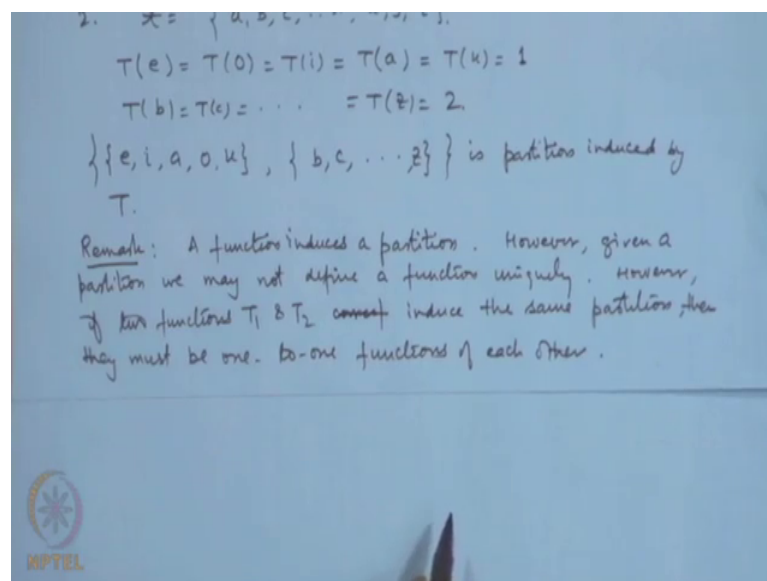 2. X = { a, b, c, ... x, y, z }.
T(e) = T(0) = T(i) = T(a) = T(u) = 1
T(b) = T(c) = . . . = T(z) = 2.
{ {e, i, a, o, u} , { b, c, . . . , z} } is partition induced by
T.
Remark : A function induces a partition . However, given a
partition we may not define a function uniquely . However,
if two functions T1 & T2 induce the same partition , then
they must be one-to-one functions of each other .
NPTEL